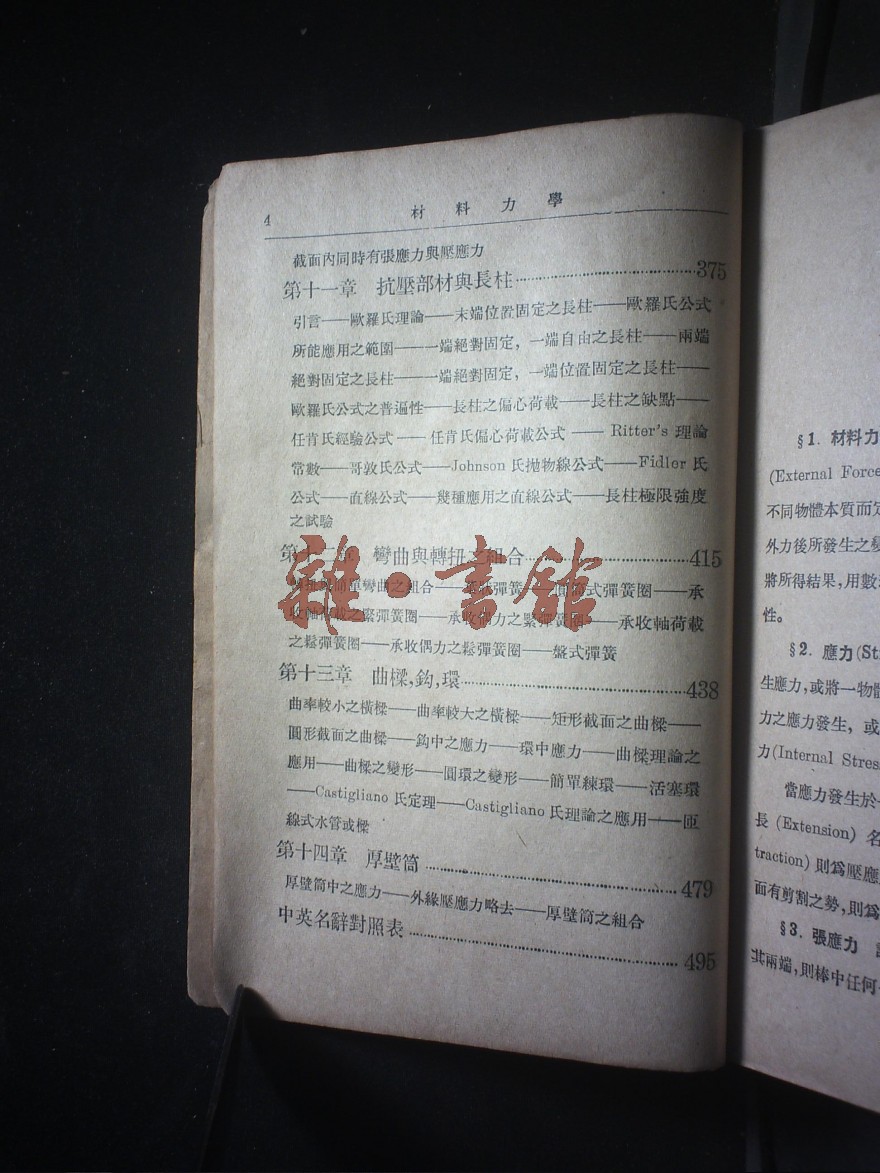 4 材料力學
截面內同時有張應力與壓應力
第十一章 抗壓部材與長柱……375
引言——歐羅氏理論——末端位置固定之長柱——歐羅氏公式
所能應用之範圍——一端絕對固定，一端自由之長柱——兩端
絕對固定之長柱——一端絕對固定，一端位置固定之長柱——
歐羅氏公式之普遍性——長柱之偏心荷載——長柱之缺點——
任肯氏經驗公式——任肯氏偏心荷載公式——Ritter's 理論
常數——哥敦氏公式——Johnson 氏拋物線公式——Fidler 氏
公式——直線公式——幾種應用之直線公式——長柱極限強度
之試驗
第十二章 彎曲與轉扭之組合……415
單彎曲之組合——彈簧——式彈簧圈——承
收軸荷載之緊彈簧圈——承收偶力之緊彈簧圈——承收軸荷載
之鬆彈簧圈——承收偶力之鬆彈簧圈——盤式彈簧
第十三章 曲樑,鈎,環……438
曲率較小之橫樑——曲率較大之橫樑——矩形截面之曲樑——
圓形截面之曲樑——鈎中之應力——環中應力——曲樑理論之
應用——曲樑之變形——圓環之變形——簡單練環——活塞環
——Castigliano 氏定理——Castigliano 氏理論之應用——匝
線式水管或樑
第十四章 厚壁筒……479
厚壁筒中之應力——外緣壓應力略去——厚壁筒之組合
中英名辭對照表……495
雜·書館
§1. 材料力
(External Force
不同物體本質而定
外力後所發生之變
將所得結果,用數
性。
§2. 應力(St
生應力,或將一物體
力之應力發生，或
力(Internal Stress
當應力發生於
長 (Extension) 名
traction) 則爲壓應
面有剪割之勢,則爲
§3. 張應力
其兩端,則棒中任何